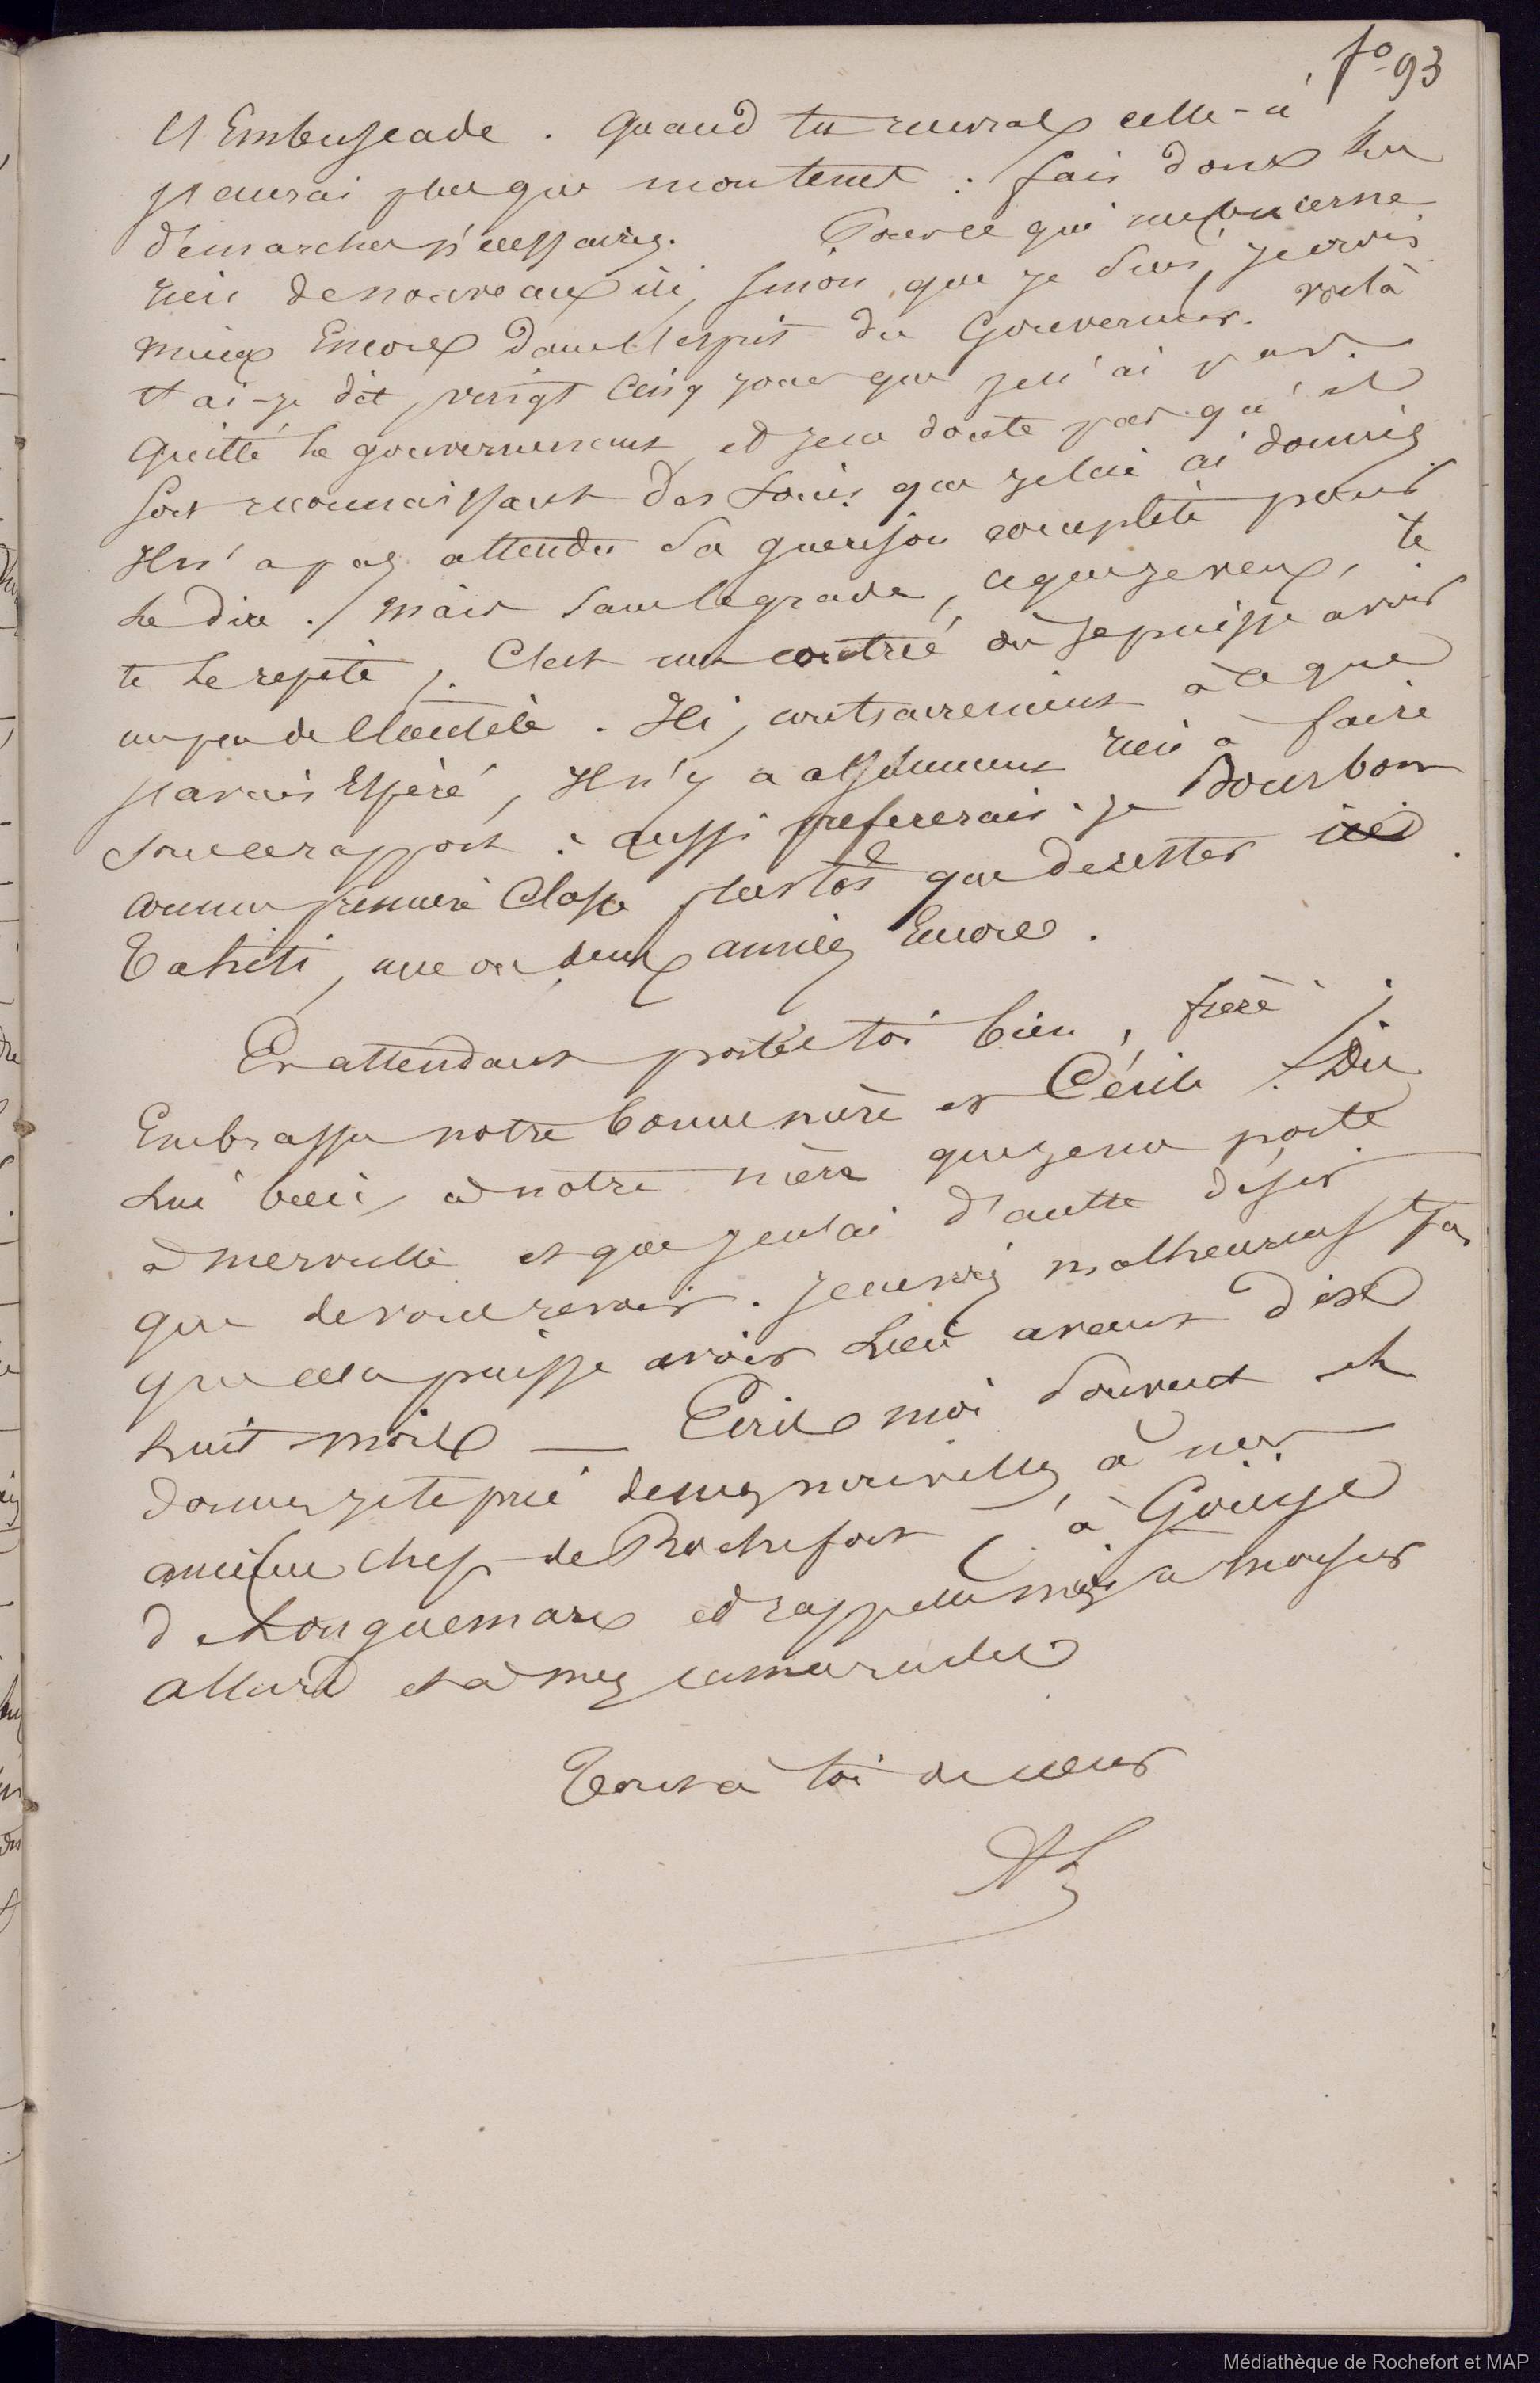 f° 93
l'Embuscade. Quand tu recevras celle-ci
j'aurai plus que mon tems : fais donc les
démarches nécessaires. Pour ce qui me concerne
rien de nouveau ici, sinon que je suis, je crois
mieux Encore dans l'esprit du Gouverneur. voilà
t ai-je dit, vingt cinq jours que je n'ai pas
quitté le gouvernement et je ne doute pas qu'il
soit reconnaissant des soins que je lui ai donnés
Il n'a pas attendu sa guerison complète pour
le dire. Mais sans le grade, ce que je veux, te
te le repète, C'est une contrée où je puisse avoir
un peu de Clientèle. Ici, contrairement à ce que
j'avais Espéré, Il n'y a absolument rien à faire
sous ce rapport : aussi prefererais-je Bourbon
comme première Classe plustot que de rester ici
Tahiti, une ou deux années Encore.
En attendant porte toi bien, frère ;
Embrasse notre bonne mère et Cécile. Dis
lui bien à notre mère que je me porte
à merveille et que je n'ai d'autre désir
que de vous revoir. Je ne crois malheureust pas
que cela puisse avoir lieu avant dix
huit mois — Ecris moi souvent et
donne je te prie de mes nouvelles à mes
anciens chefs de Rochefort, à Gouye
d Longuemare et rappelle moi à monsieur
allard et à mes camarades
Tout à toi de cœur